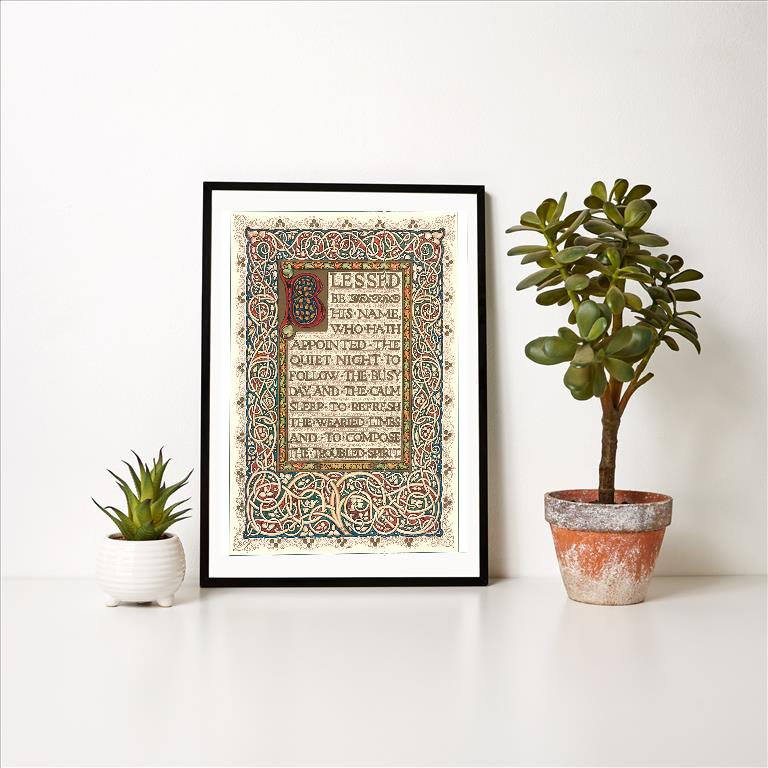 BLESSED
BE
HIS NAME,
WHO·HATH
APPOINTED·THE
QUIET·NIGHT·TO
FOLLOW·THE·BUSY
DAY·AND·THE·CALM
SLEEP·TO·REFRESH
THE·WEARIED·LIMBS
AND·TO·COMPOSE
THE·TROUBLED·SPIRIT.